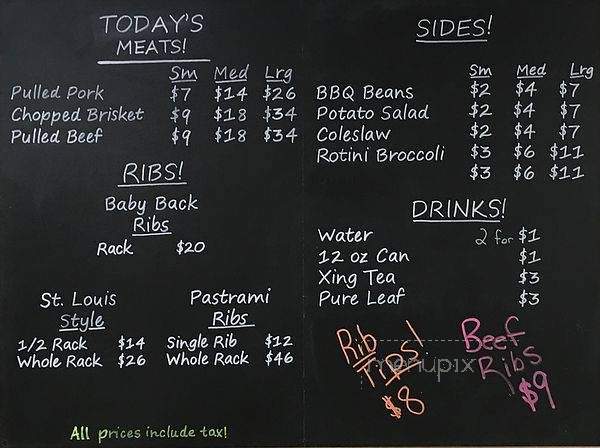 TODAY'S
MEATS!
Sm Med Lrg
Pulled Pork $7 $14 $26
Chopped Brisket $9 $18 $34
Pulled Beef $9 $18 $34
RIBS!
Baby Back
Ribs
Rack $20
St. Louis
Style
1/2 Rack $14
Whole Rack $26
Pastrami
Ribs
Single Rib $12
Whole Rack $46
All prices include tax!
SIDES!
Sm Med Lrg
BBQ Beans $2 $4 $7
Potato Salad $2 $4 $7
Coleslaw $2 $4 $7
Rotini Broccoli $3 $6 $11
$3 $6 $11
DRINKS!
Water 2 for $1
12 oz Can $1
Xing Tea $3
Pure Leaf $3
Rib
Tips!
$8
Beef
Ribs
$9
menupix